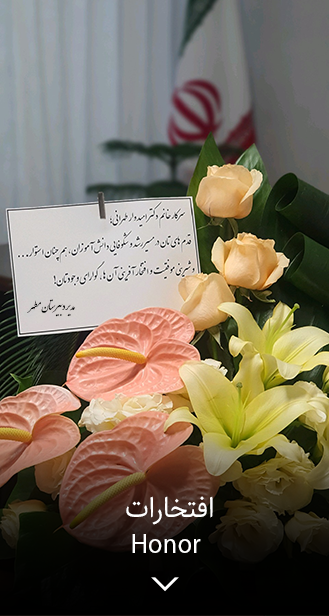 سرکار خانم دکتر امیدوار طهرانی؛
قدم های تان در مسیر رشد و شکوفایی دانش آموزان، هم چنان استوار...
و شیرینی موفقیت و افتخار آفرینی آن ها، گوارای وجودتان!
مدیر دبیرستان مطهر
افتخارات
Honor